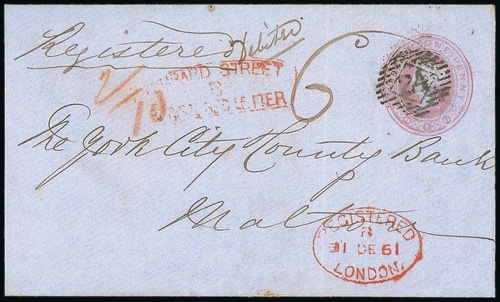 Registered
ONE PENNY
LOMBARD STREET
B
2/10
6
The York City & County Bank
Malton
REGISTERED
B
31 DE 61
LONDON